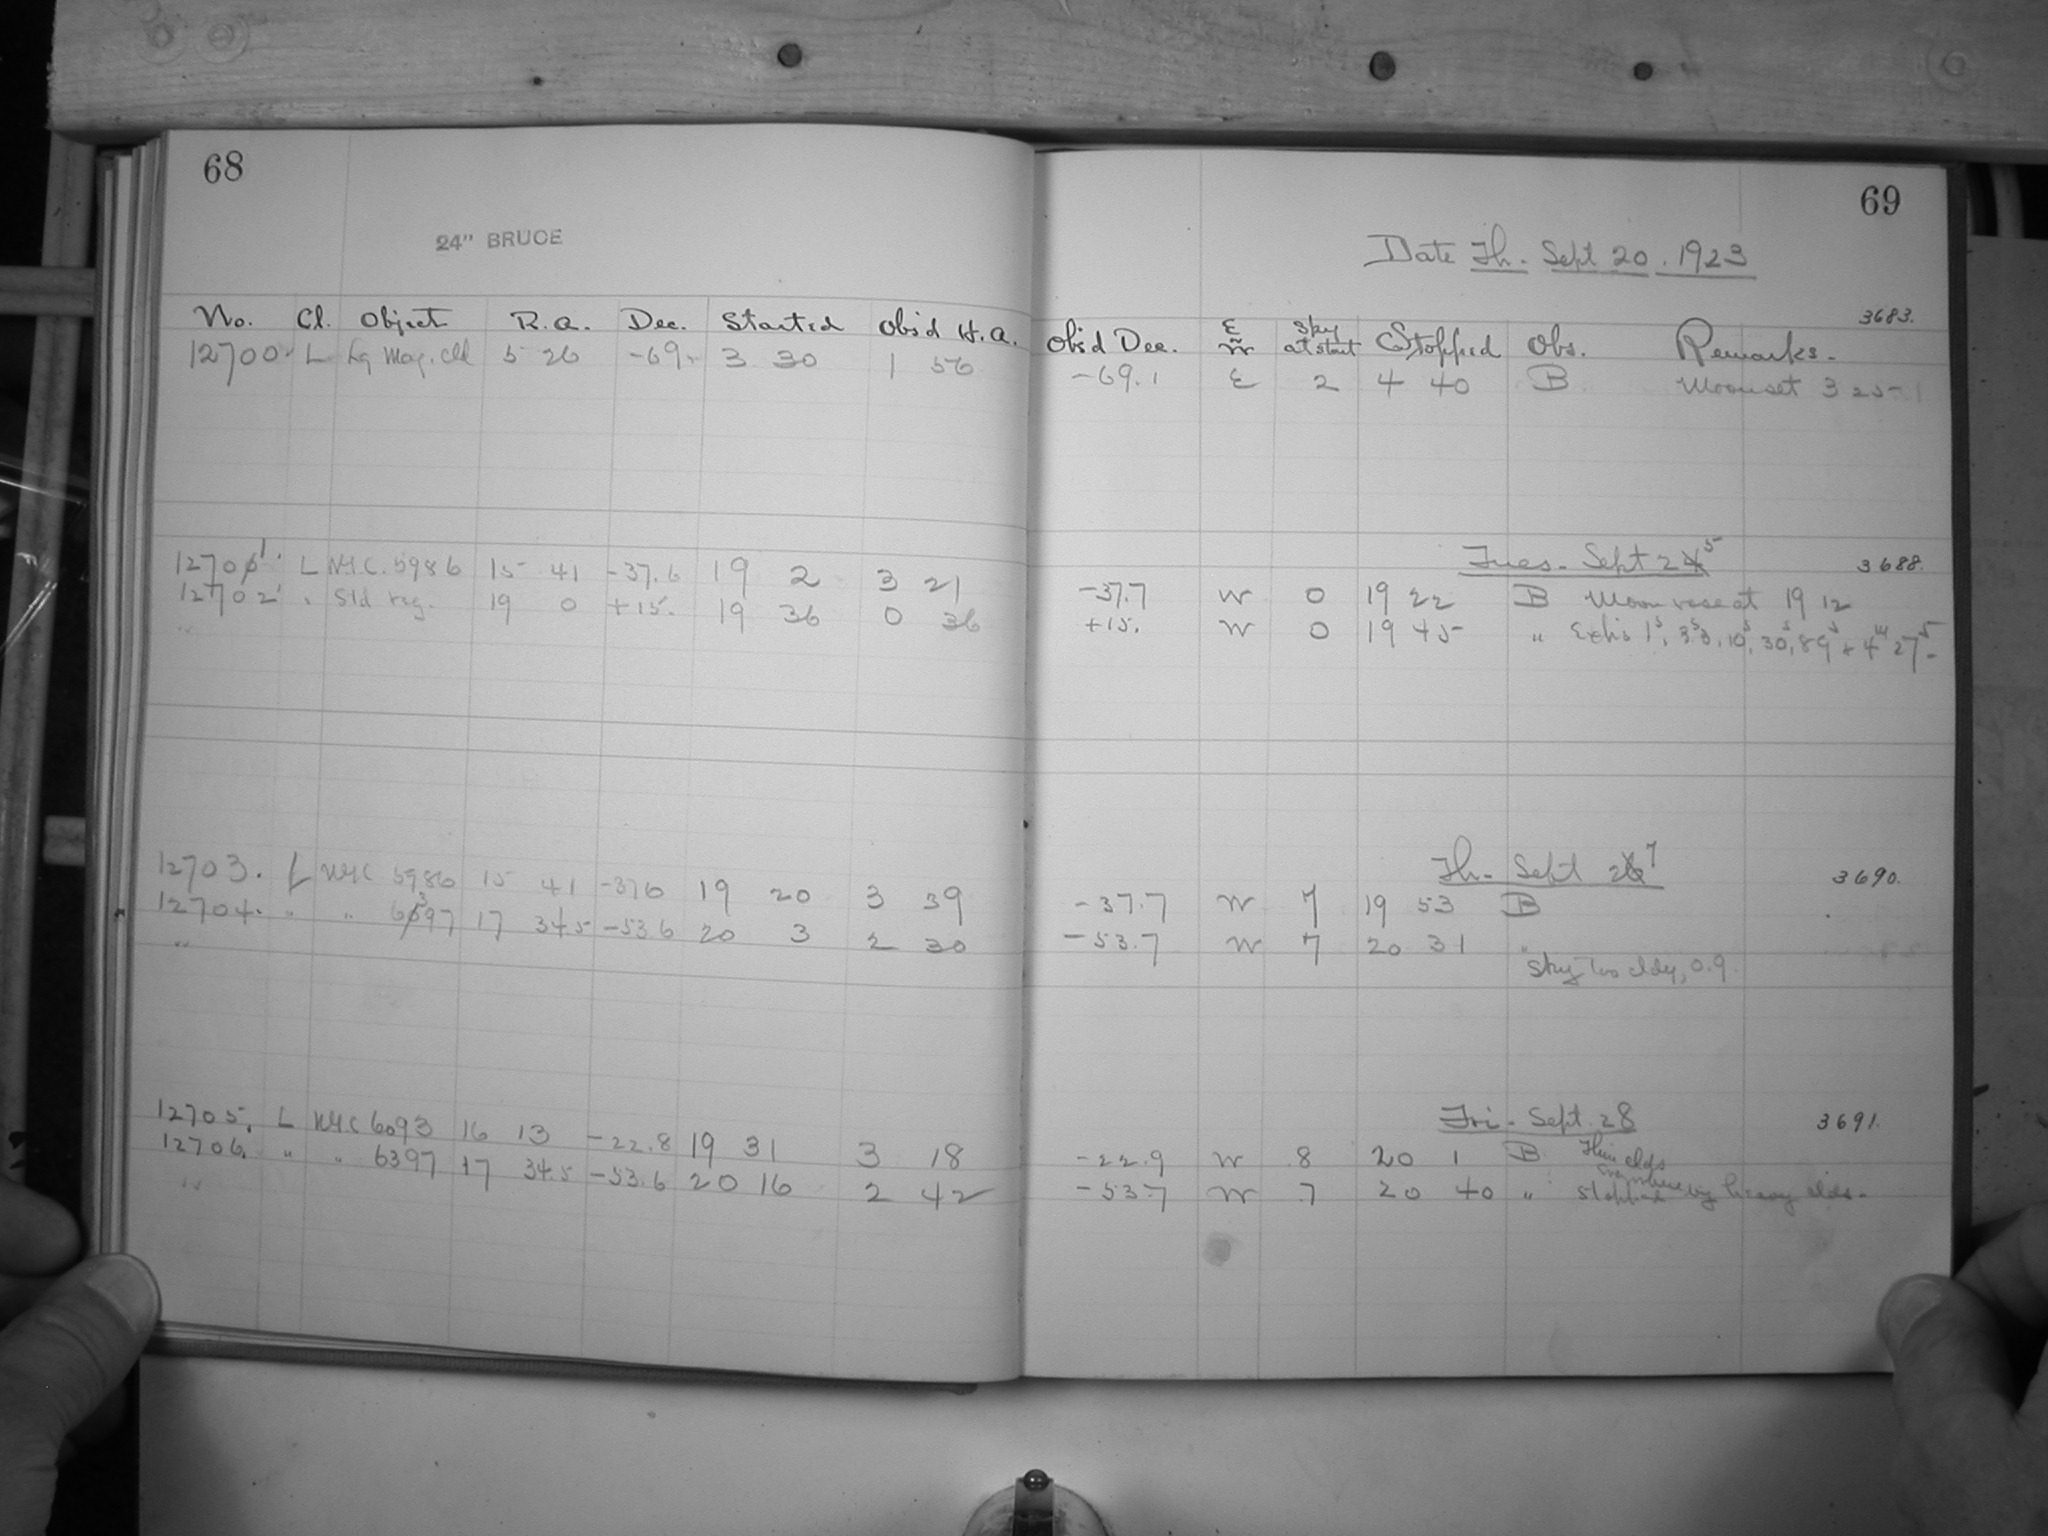 68
24" BRUCE
No. Cl. Object R.A. Dec. Started Obs'd H.A.
12700 L Lg Mag. Cld 5 26 -69. 3 30 1 56
12701 L N.G.C. 5986 15 41 -37.6 19 2 3 21
12702 " Std reg. 19 0 +15. 19 36 0 36
12703. L NGC 5986 15 41 -37.6 19 20 3 39
12704. " " 6397 17 34.5 -53.6 20 3 2 30
12705. L NGC 6093 16 13 -22.8 19 31 3 18
12706. " " 6397 17 34.5 -53.6 20 16 2 42
69
Date Th. Sept 20. 1923
3683.
Obs'd Dec. E W Sky at start Stopped Obs. Remarks.
-69.1 E 2 4 40 B Moon set 3 25
Tues. Sept 25 3688.
-37.7 W 0 19 22 B Moon rose at 19 12
+15. W 0 19 45 " Exp's 1s, 3s.3, 10s, 30s, 89s + 4m 27s
Th. Sept 27 3690.
-37.7 W 7 19 53 B
-53.7 W 7 20 31 "
Sky too cldy, 0.9.
Fri. Sept. 28 3691.
-22.9 W 8 20 1 B Thin clds everywhere
-53.7 W 7 20 40 " Stopped by heavy clds.